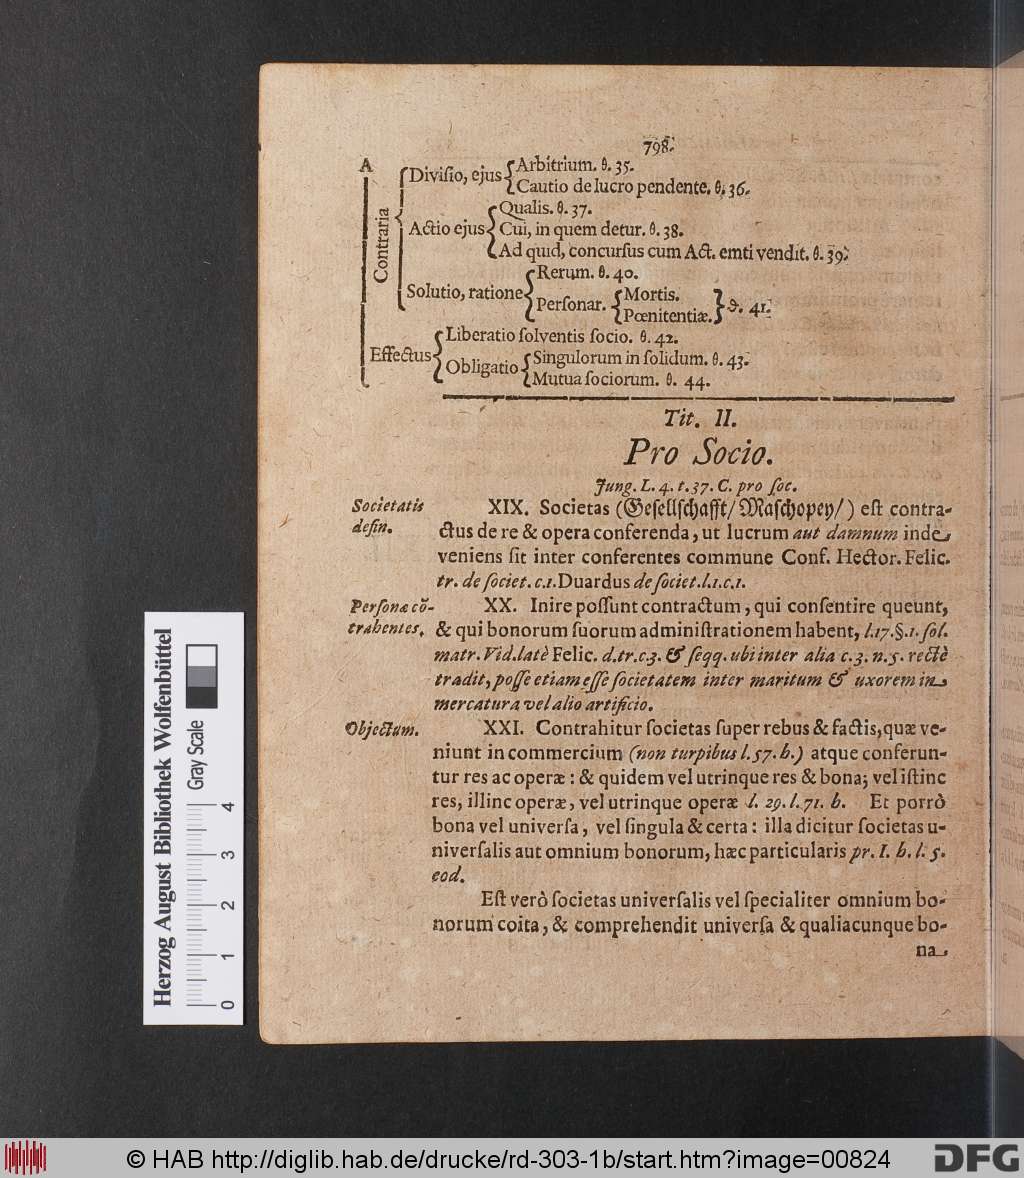 798.
A
Contraria
Diviſio, ejus
Arbitrium. θ. 35.
Cautio de lucro pendente. θ. 36.
Actio ejus
Qualis. θ. 37.
Cui, in quem detur. θ. 38.
Ad quid, concurſus cum Act. emti vendit. θ. 39.
Solutio, ratione
Rerum. θ. 40.
Perſonar.
Mortis.
Pœnitentiæ.
ϑ. 41.
Effectus
Liberatio ſolventis ſocio. θ. 42.
Obligatio
Singulorum in ſolidum. θ. 43.
Mutua ſociorum. θ. 44.
Tit. II.
Pro Socio.
Jung. L. 4. t. 37. C. pro ſoc.
Societatis
defin.
XIX. Societas (Geſellſchafft/ Maſchopey/) eſt contra-
ctus de re & opera conferenda, ut lucrum aut damnum inde
veniens ſit inter conferentes commune Conf. Hector. Felic.
tr. de ſociet. c.1. Duardus de ſociet. l.1. c.1.
Perſonæ cõ-
trahentes.
XX. Inire poſſunt contractum, qui conſentire queunt,
& qui bonorum ſuorum adminiſtrationem habent, l.17.§.1. ſol.
matr. Vid. latè Felic. d.tr.c.3. & ſeqq. ubi inter alia c.3. n.5. rectè
tradit, poſſe etiam eſſe ſocietatem inter maritum & uxorem in
mercatura vel alio artificio.
Objectum.
XXI. Contrahitur ſocietas ſuper rebus & factis, quæ ve-
niunt in commercium (non turpibus l.57. h.) atque conferun-
tur res ac operæ: & quidem vel utrinque res & bona; vel iſtinc
res, illinc operæ, vel utrinque operæ l. 29. l. 71. h. Et porrò
bona vel univerſa, vel ſingula & certa: illa dicitur ſocietas u-
niverſalis aut omnium bonorum, hæc particularis pr. I. h. l. 5.
eod.
Eſt verò ſocietas univerſalis vel ſpecialiter omnium bo-
norum coita, & comprehendit univerſa & qualiacunque bo-
na
Herzog August Bibliothek Wolfenbüttel
Gray Scale
0 1 2 3 4
© HAB http://diglib.hab.de/drucke/rd-303-1b/start.htm?image=00824
DFG